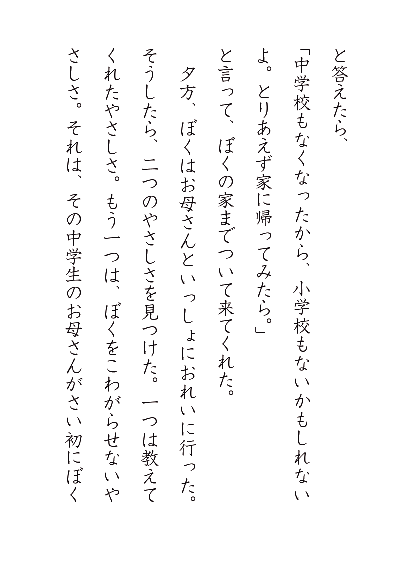 と答えたら、
「中学校もなくなったから、小学校もないかもしれない
よ。とりあえず家に帰ってみたら。」
と言って、ぼくの家までついて来てくれた。
　夕方、ぼくはお母さんといっしょにおれいに行った。
そうしたら、二つのやさしさを見つけた。一つは教えて
くれたやさしさ。もう一つは、ぼくをこわがらせないや
さしさ。それは、その中学生のお母さんがさい初にぼく